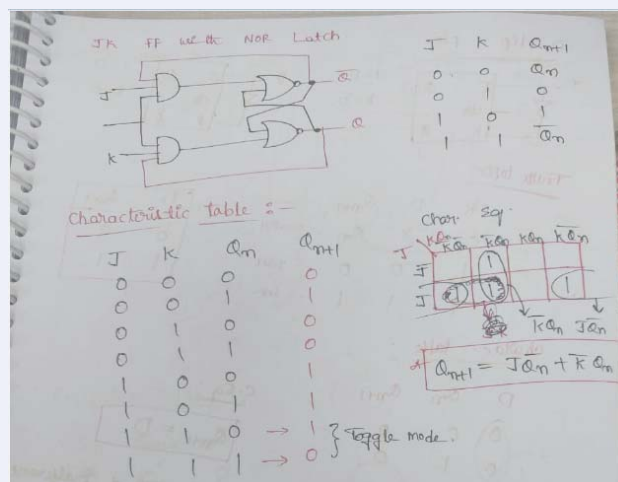 JK FF with NOR Latch
J K Qn+1
0 0 Qn
0 1 0
1 0 1
1 1 Q̅n
J
K
Q̅
Q
Characteristic table :-
J K Qn Qn+1
0 0 0 0
0 0 1 1
0 1 0 0
0 1 1 0
1 0 0 1
1 0 1 1
1 1 0 → 1
1 1 1 → 0
} Toggle mode.
Char. Eq.
J KQn K̅Q̅n K̅Qn KQn KQ̅n
J̅ 1
J 1 1 1
K̅Qn JQ̅n
Qn+1 = JQ̅n + K̅Qn